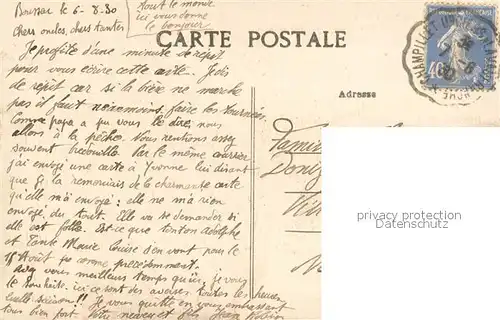 Boussac le 6-8-30
tout le monde
ici vous donne
le bonjour
chers oncles, chers tantes
CARTE POSTALE
Je profite d'une minute de répit
pour vous écrire cette carte. Je dis
de répit car si la bière ne marche
pas il faut néanmoins faire les tournées
Comme papa a pu vous le dire, nous
allons à la pêche. Nous rentrons assez
souvent bredouille. Par le même courrier
j'ai envoyé une carte à Yvonne lui disant
que je la remerciais de la charmante carte
qu'elle m'a envoyé: elle ne m'a rien
envoyé du tout. Elle va se demander si
elle est folle. Est-ce que tonton Adolphe
et Tante Marie Louise s'en vont pour le
15 Août comme précédemment.
meilleurs temps qu'ici, je vous
le souhaite. ici ce sont des averses toutes les heures
quelle saison!! Je vous quitte en vous embrassant
tous bien fort. Votre neveu et fils Jean
Adresse
40
privacy protection
Datenschutz